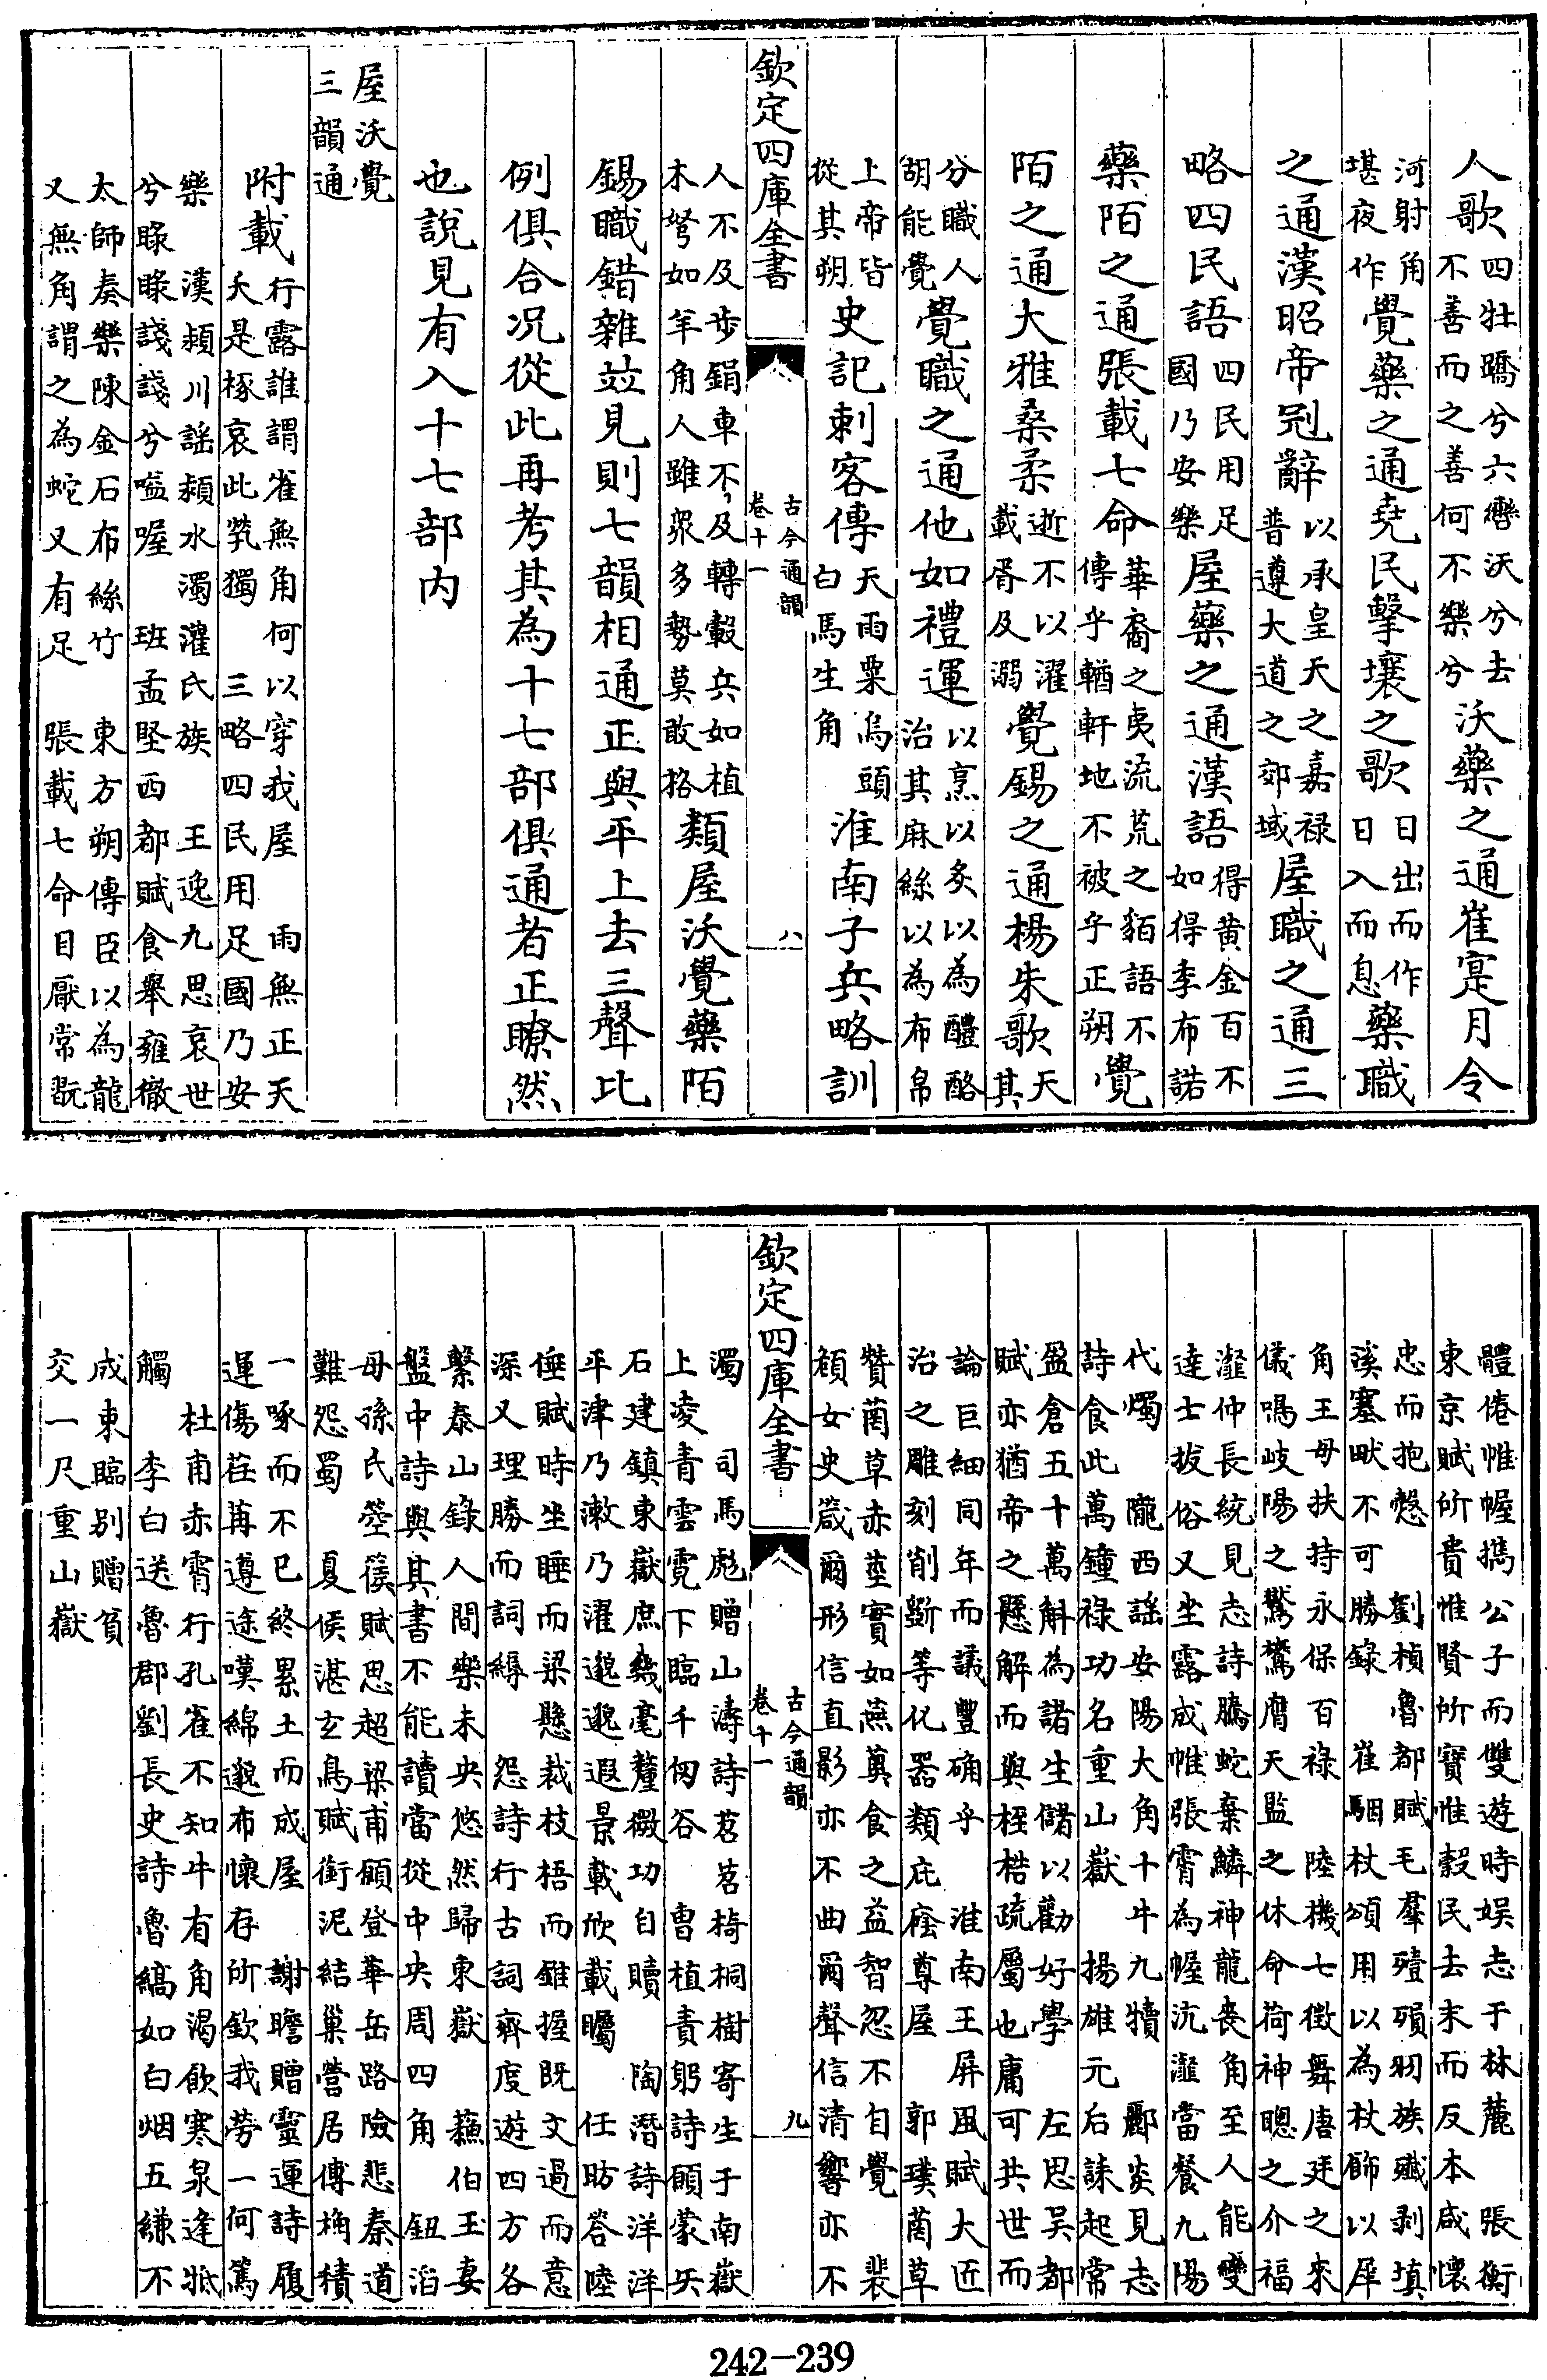 人歌四牡蹻兮六轡沃兮去不善而之善何不樂兮沃藥之通崔寔月令
河射角堪夜作覺藥之通堯民擊壤之歌日出而作日入而息藥職
之通漢昭帝冠辭以承皇天之嘉禄普遵大道之郊域屋職之通三
略四民語四民用足國乃安樂屋藥之通漢語得黄金百不如得季布諾
藥陌之通張載七命華裔之夷流荒之貊語不傳乎輶軒地不被乎正朔覺
陌之通大雅桑柔逝不以濯載胥及溺覺錫之通楊朱歌天其
分職人胡能覺覺職之通他如禮運以烹以炙以為醴酪治其麻絲以為布帛
上帝皆從其朔史記刺客傳天雨粟烏頭白馬生角淮南子兵略訓
欽定四庫全書
古今通韻卷十一
八
人不及步鋗車不及轉轂兵如植木弩如羊角人雖衆多勢莫敢格類屋沃覺藥陌
錫職錯雜竝見則七韻相通正與平上去三聲比
例俱合况從此再考其為十七部俱通者正瞭然
也說見有入十七部内
屋沃覺三韻通
附載行露誰謂雀無角何以穿我屋　雨無正天夭是椓哀此煢獨　三略四民用足國乃安
樂　漢潁川謡潁水濁灌氏族　王逸九思哀世兮睩睩諓諓兮嗌喔　班孟堅西都賦食舉雍徹
太師奏樂陳金石布絲竹　東方朔傳臣以為龍又無角謂之為蛇又有足　張載七命目厭常翫
體倦帷幄攜公子而雙遊時娛志于林麓　張衡東京賦所貴惟賢所寶惟穀民去末而反本咸懷
忠而抱慤　劉楨魯都賦毛羣殪殞羽族殱剥填溪塞畎不可勝錄　崔駰杖頌用以為杖飾以犀
角王母扶持永保百禄　陸機七徵舞唐廷之來儀鳴岐陽之鸑鷟膺天監之休命荷神聰之介福
瀣仲長統見志詩騰蛇棄鱗神龍喪角至人能變達士拔俗又坐露成帷張霄為幄沆瀣當餐九陽
代燭　隴西謡安陽大角十牛九犢　酈炎見志詩食此萬鐘禄功名重山嶽　揚雄元后誄起常
盈倉五十萬斛為諸生儲以勸好學　左思吴都賦亦猶帝之懸解而與桎梏疏屬也庸可共世而
論巨細同年而議豐确乎　淮南王屏風賦大匠治之雕刻削斵等化器類庇廕尊屋　郭璞䓘草
贊䓘草赤莖實如燕薁食之益智忽不自覺　裴頠女史箴爾形信直影亦不曲爾聲信清響亦不
欽定四庫全書
古今通韻卷十一
九
濁　司馬彪贈山濤詩苕苕椅桐樹寄生于南嶽上凌青雲霓下臨千仞谷　曹植責躬詩願蒙矢
石建鎮東嶽庶幾毫釐微功自贖　陶潛詩洋洋平津乃漱乃濯邈邈遐景載欣載矚　任昉答陸
倕賦時坐睡而梁懸裁枝梧而錐握既文過而意深又理勝而詞縟　怨詩行古詞齊度遊四方各
繫泰山錄人間樂未央悠然歸東嶽　蘇伯玉妻盤中詩與其書不能讀當從中央周四角　鈕滔
母孫氏箜篌賦思超梁甫願登華岳路險悲秦道難怨蜀　夏侯湛玄鳥賦銜泥結巢營居傅桷積
一啄而不已終累土而成屋　謝瞻贈靈運詩履運傷荏苒遵途嘆綿邈布懷存所欽我勞一何篤
杜甫赤霄行孔雀不知牛有角渴飲寒泉逢牴觸　李白送魯郡劉長史詩魯縞如白烟五縑不
成束臨别贈貧交一尺重山嶽
242-239